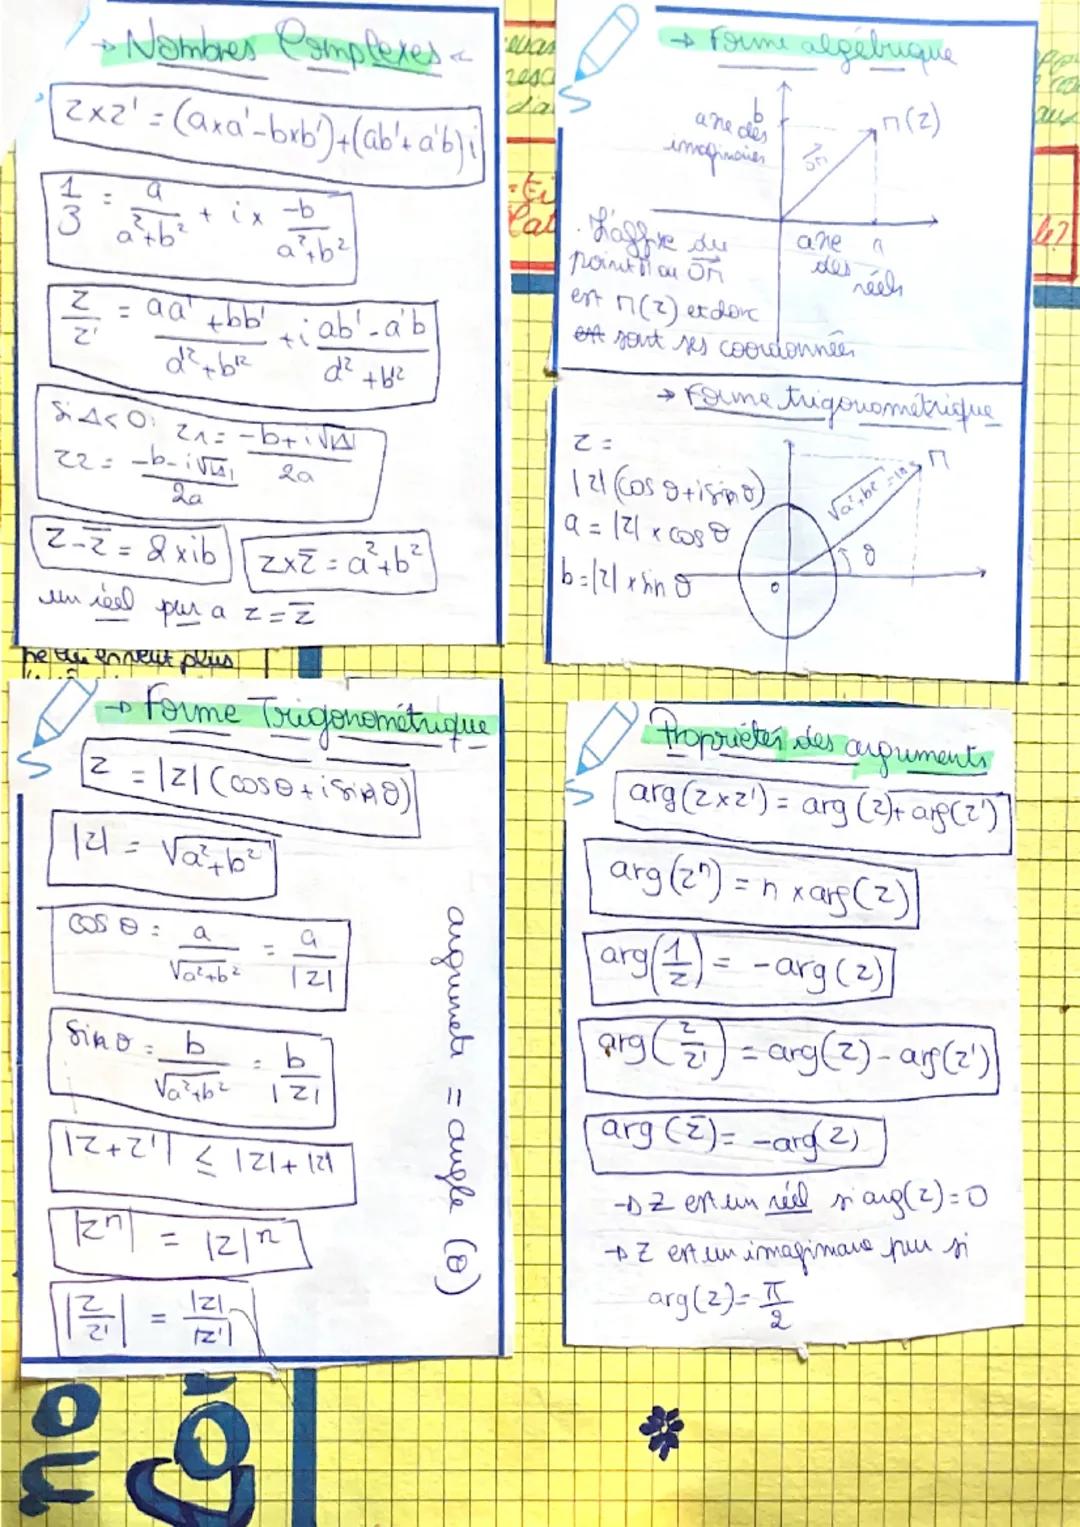 → Nombres Complexes
z×z' = (a×a'-b×b')+(ab'+a'b)i
1/3 = a/a²+b² + i × -b/a²+b²
z/z' = aa'+bb'/a'²+b'² + i ab'-a'b/a'²+b'²
Si Δ<0: z1 = -b+i√|Δ|/2a
z2 = -b-i√|Δ|/2a
z-z̄ = 2×ib
z×z̄ = a²+b²
un réel pur a z = z̄
→ Forme algébrique
b
axe des
imaginaires
M(z)
OM
axe
des
réels
a
L'affixe du
point M ou OM
est M(z) et donc
sont ses coordonnées
→ Forme trigonométrique
z =
|z| (cos θ+isin θ)
a = |z| × cos θ
b = |z| × sin θ
M
θ
o
→ Forme Trigonométrique
z = |z| (cosθ + i sin θ)
|z| = √a²+b²
cos θ = a/√a²+b² = a/|z|
sin θ = b/√a²+b² = b/|z|
|z+z'| ≤ |z|+|z|
|zⁿ| = |z|ⁿ
|z/z'| = |z|/|z'|
arguments = angle (θ)
Propriétés des arguments
arg(z×z') = arg(z)+arg(z')
arg(zⁿ) = n × arg(z)
arg(1/z) = -arg(z)
arg(z/z') = arg(z)-arg(z')
arg(z̄) = -arg(z)
→ z est un réel si arg(z)=0
→ z est un imaginaire pur si
arg(z) = π/2